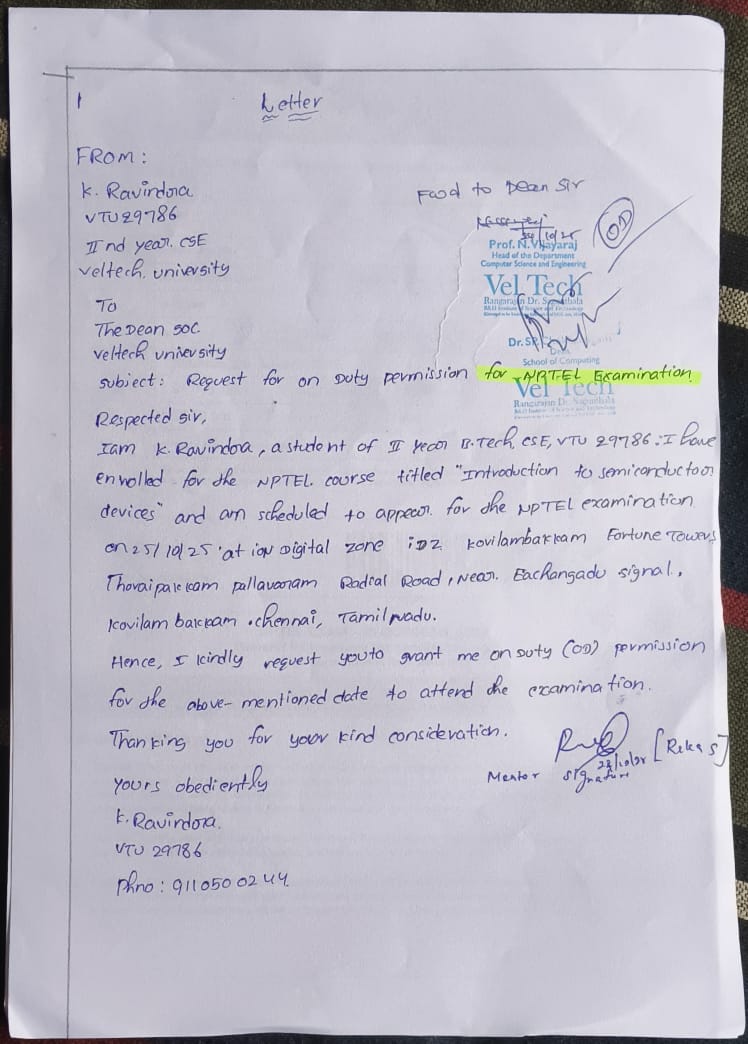 Letter
FROM:
K. Ravindra
VTU 29786
II nd year. CSE
Veltech, university
Fwd to Dean Sir
OD
24/10/25
Prof. N. Vijayaraj
Head of the Department
Computer Science and Engineering
Vel Tech
Rangarajan Dr. Sagunthala
R&D Institute of Science and Technology
To
The Dean SOC.
Veltech university
Dr. SP.
Dean
School of Computing
Vel Tech
Rangarajan Dr. Sagunthala
R&D Institute of Science and Technology
Subject: Request for on Duty permission for NPTEL Examination.
Respected sir,
I am K. Ravindra, a student of II year B.Tech, CSE, VTU 29786. I have
enrolled for the NPTEL course titled "Introduction to semiconductor
devices" and am scheduled to appear for the NPTEL examination
on 25/10/25 at ion Digital zone iDZ kovilambakkam Fortune Towers
Thoraipakkam pallavaram Radial Road, Near. Eachangadu signal.,
kovilambakkam . chennai, Tamilnadu.
Hence, I kindly request you to grant me on Duty (OD) permission
for the above-mentioned date to attend the examination.
Thanking you for your kind consideration.
Mentor signature
[Rekas]
yours obediently
K. Ravindra.
VTU 29786
Phno: 9110500244